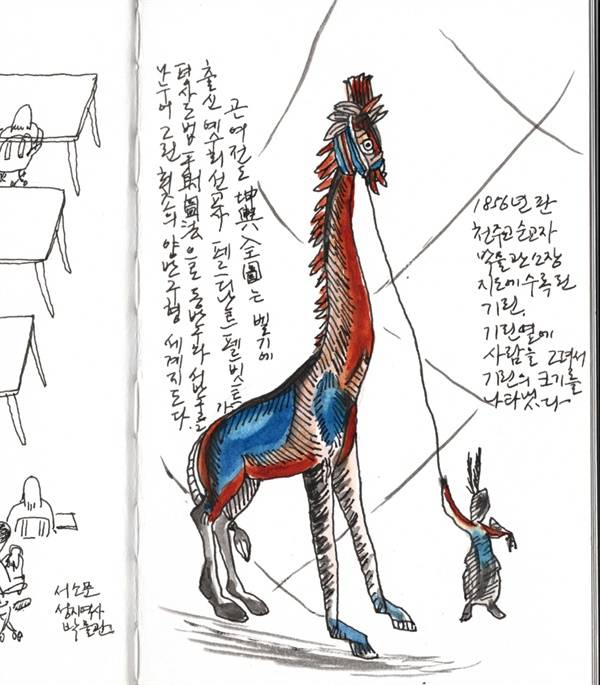 곤여전도 坤輿全圖는 벨기에
출신 예수회 선교사 펠디난트 펠빗스트가
평사도법 平射圖法으로 동반구와 서반구를
나누어 그린 최초의 양반구형 세계지도다.
1856년 판
천주교순교자
박물관 소장
지도에 수록된
기린.
기린옆에
사람을 그려서
기린의 크기를
나타냈다.
서소문
성지역사
박물관.